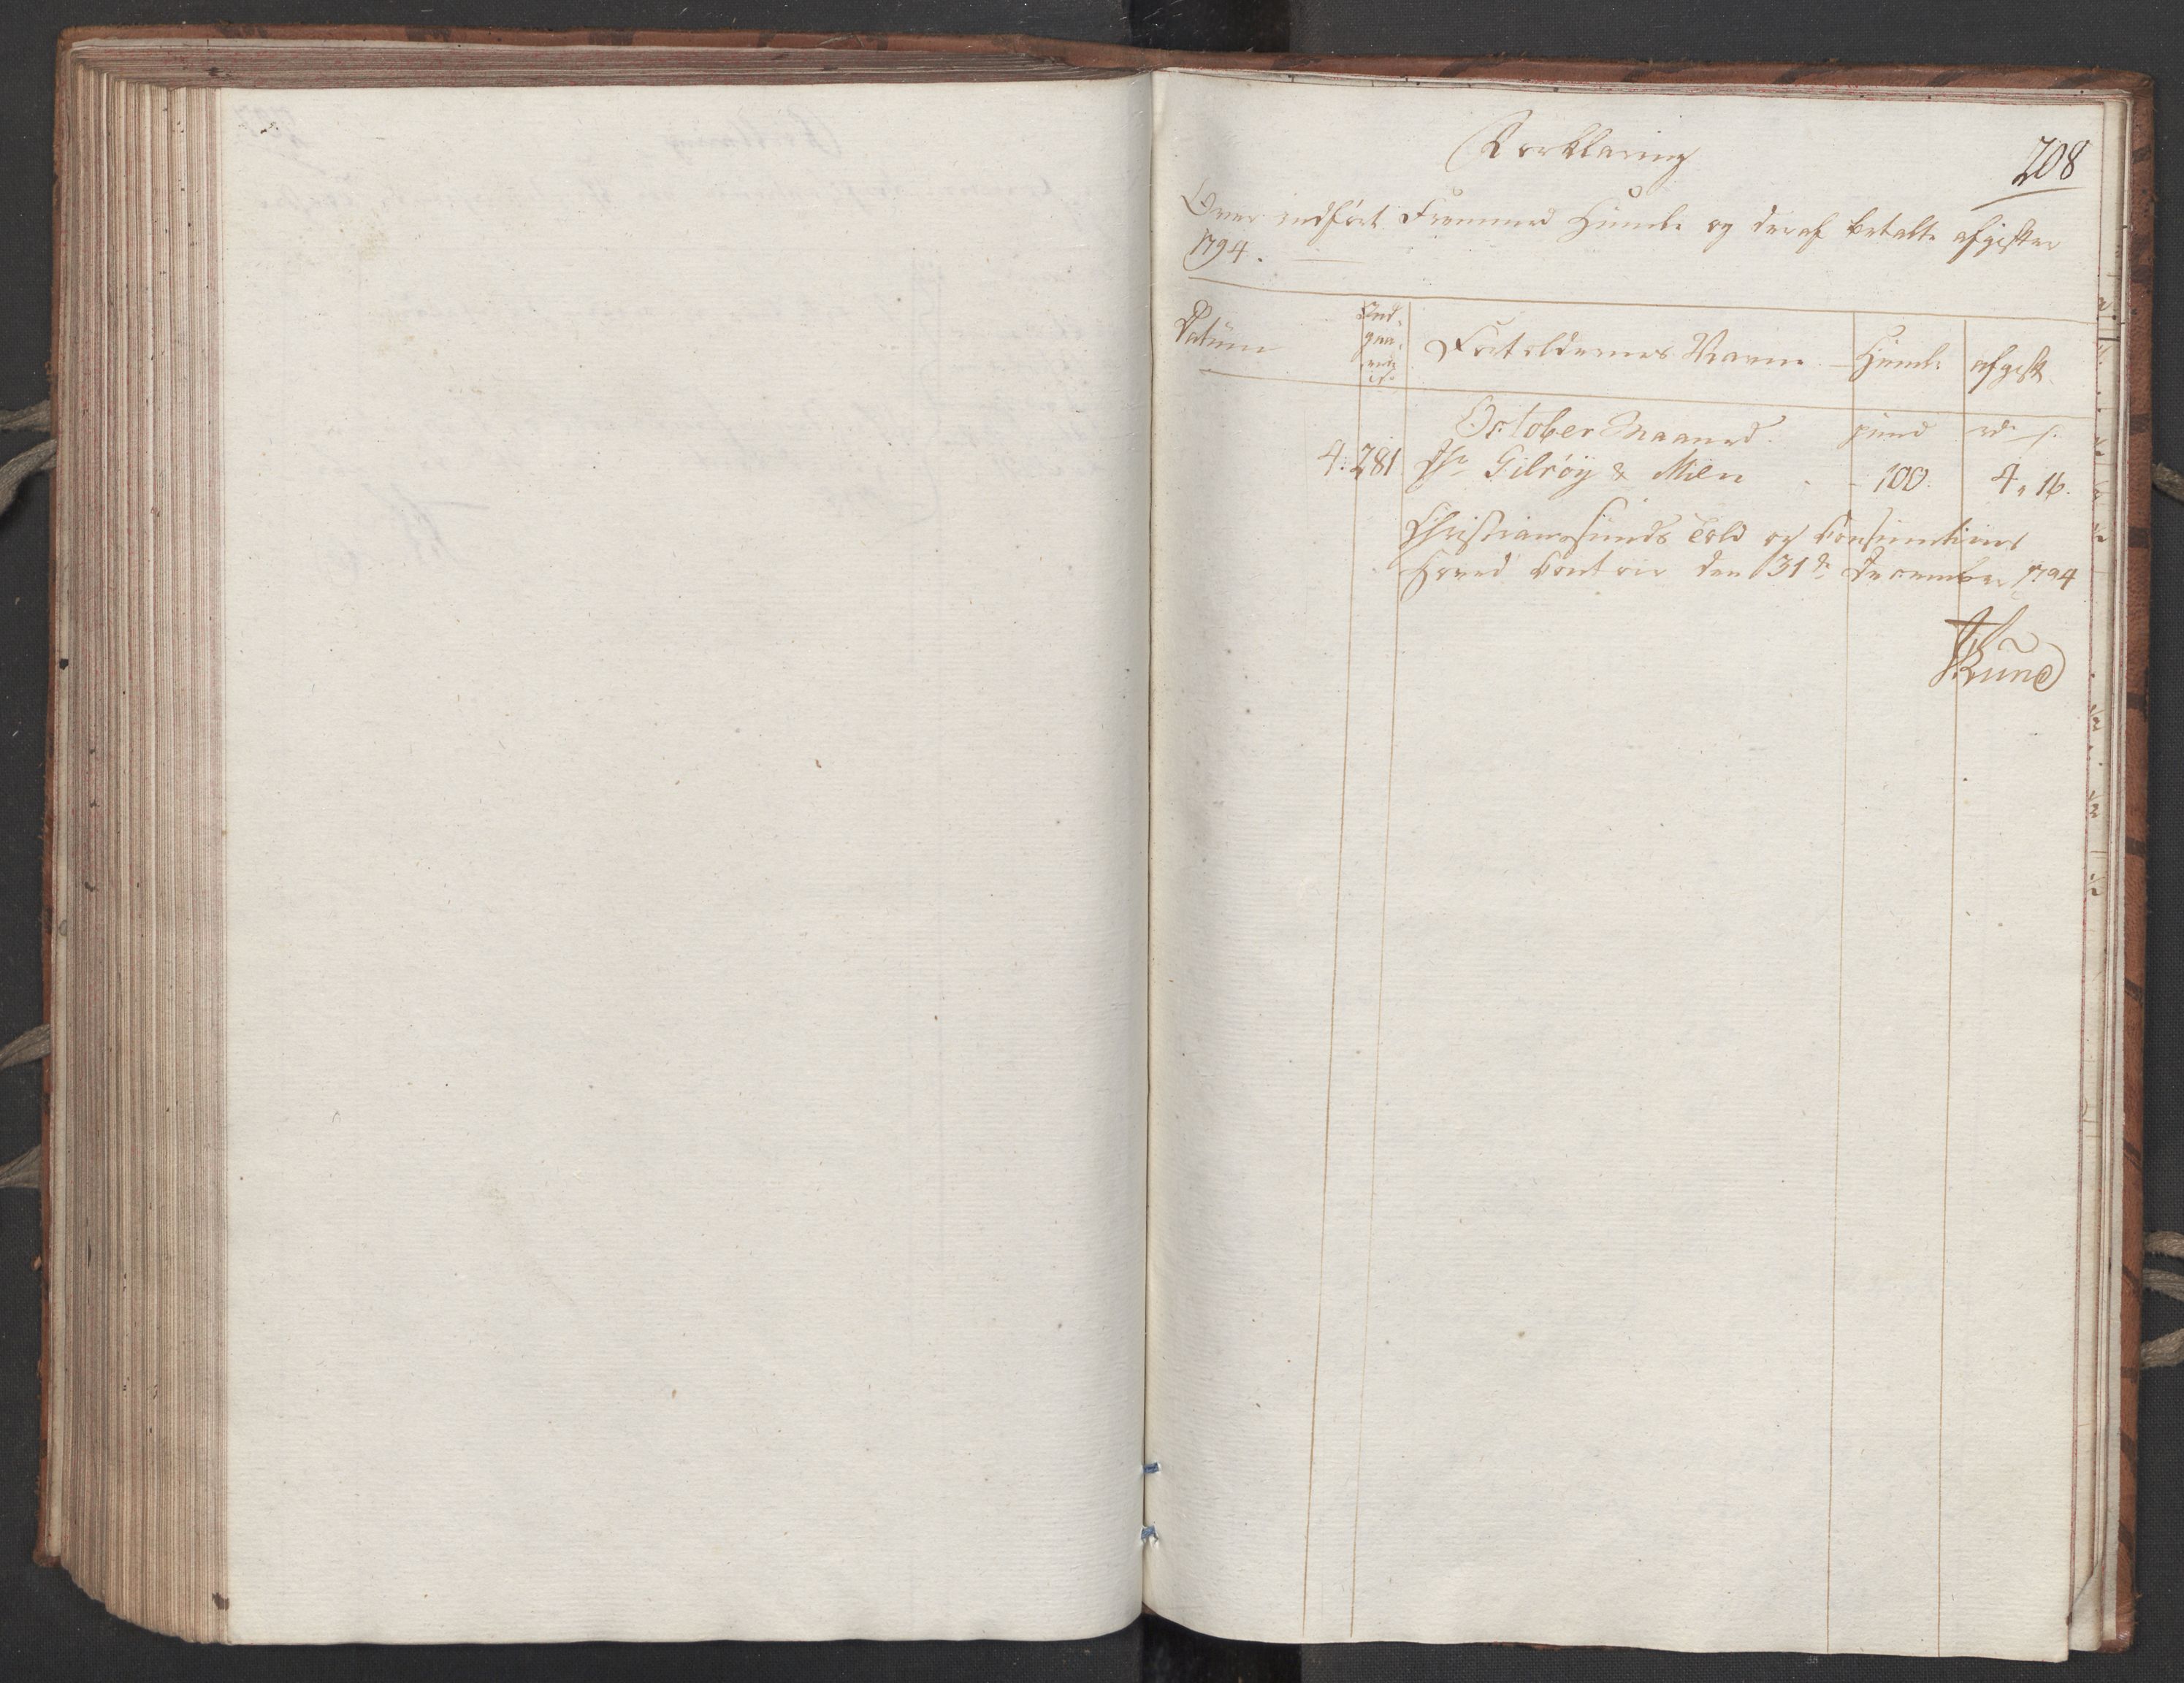 Forklaring
208
Over indført Fremmed Humle og deraf betalte afgifter
1794.
Datum Ind- Fortoldernes Navne Humle afgift
gaa-
ende
October Maaned. pund rd s.
4. 281 Hr Gilröy & Miln 100. 4, 16.
Christianssunds Told og Consumtions
Hoved Contoir den 31de December 1794
Lund